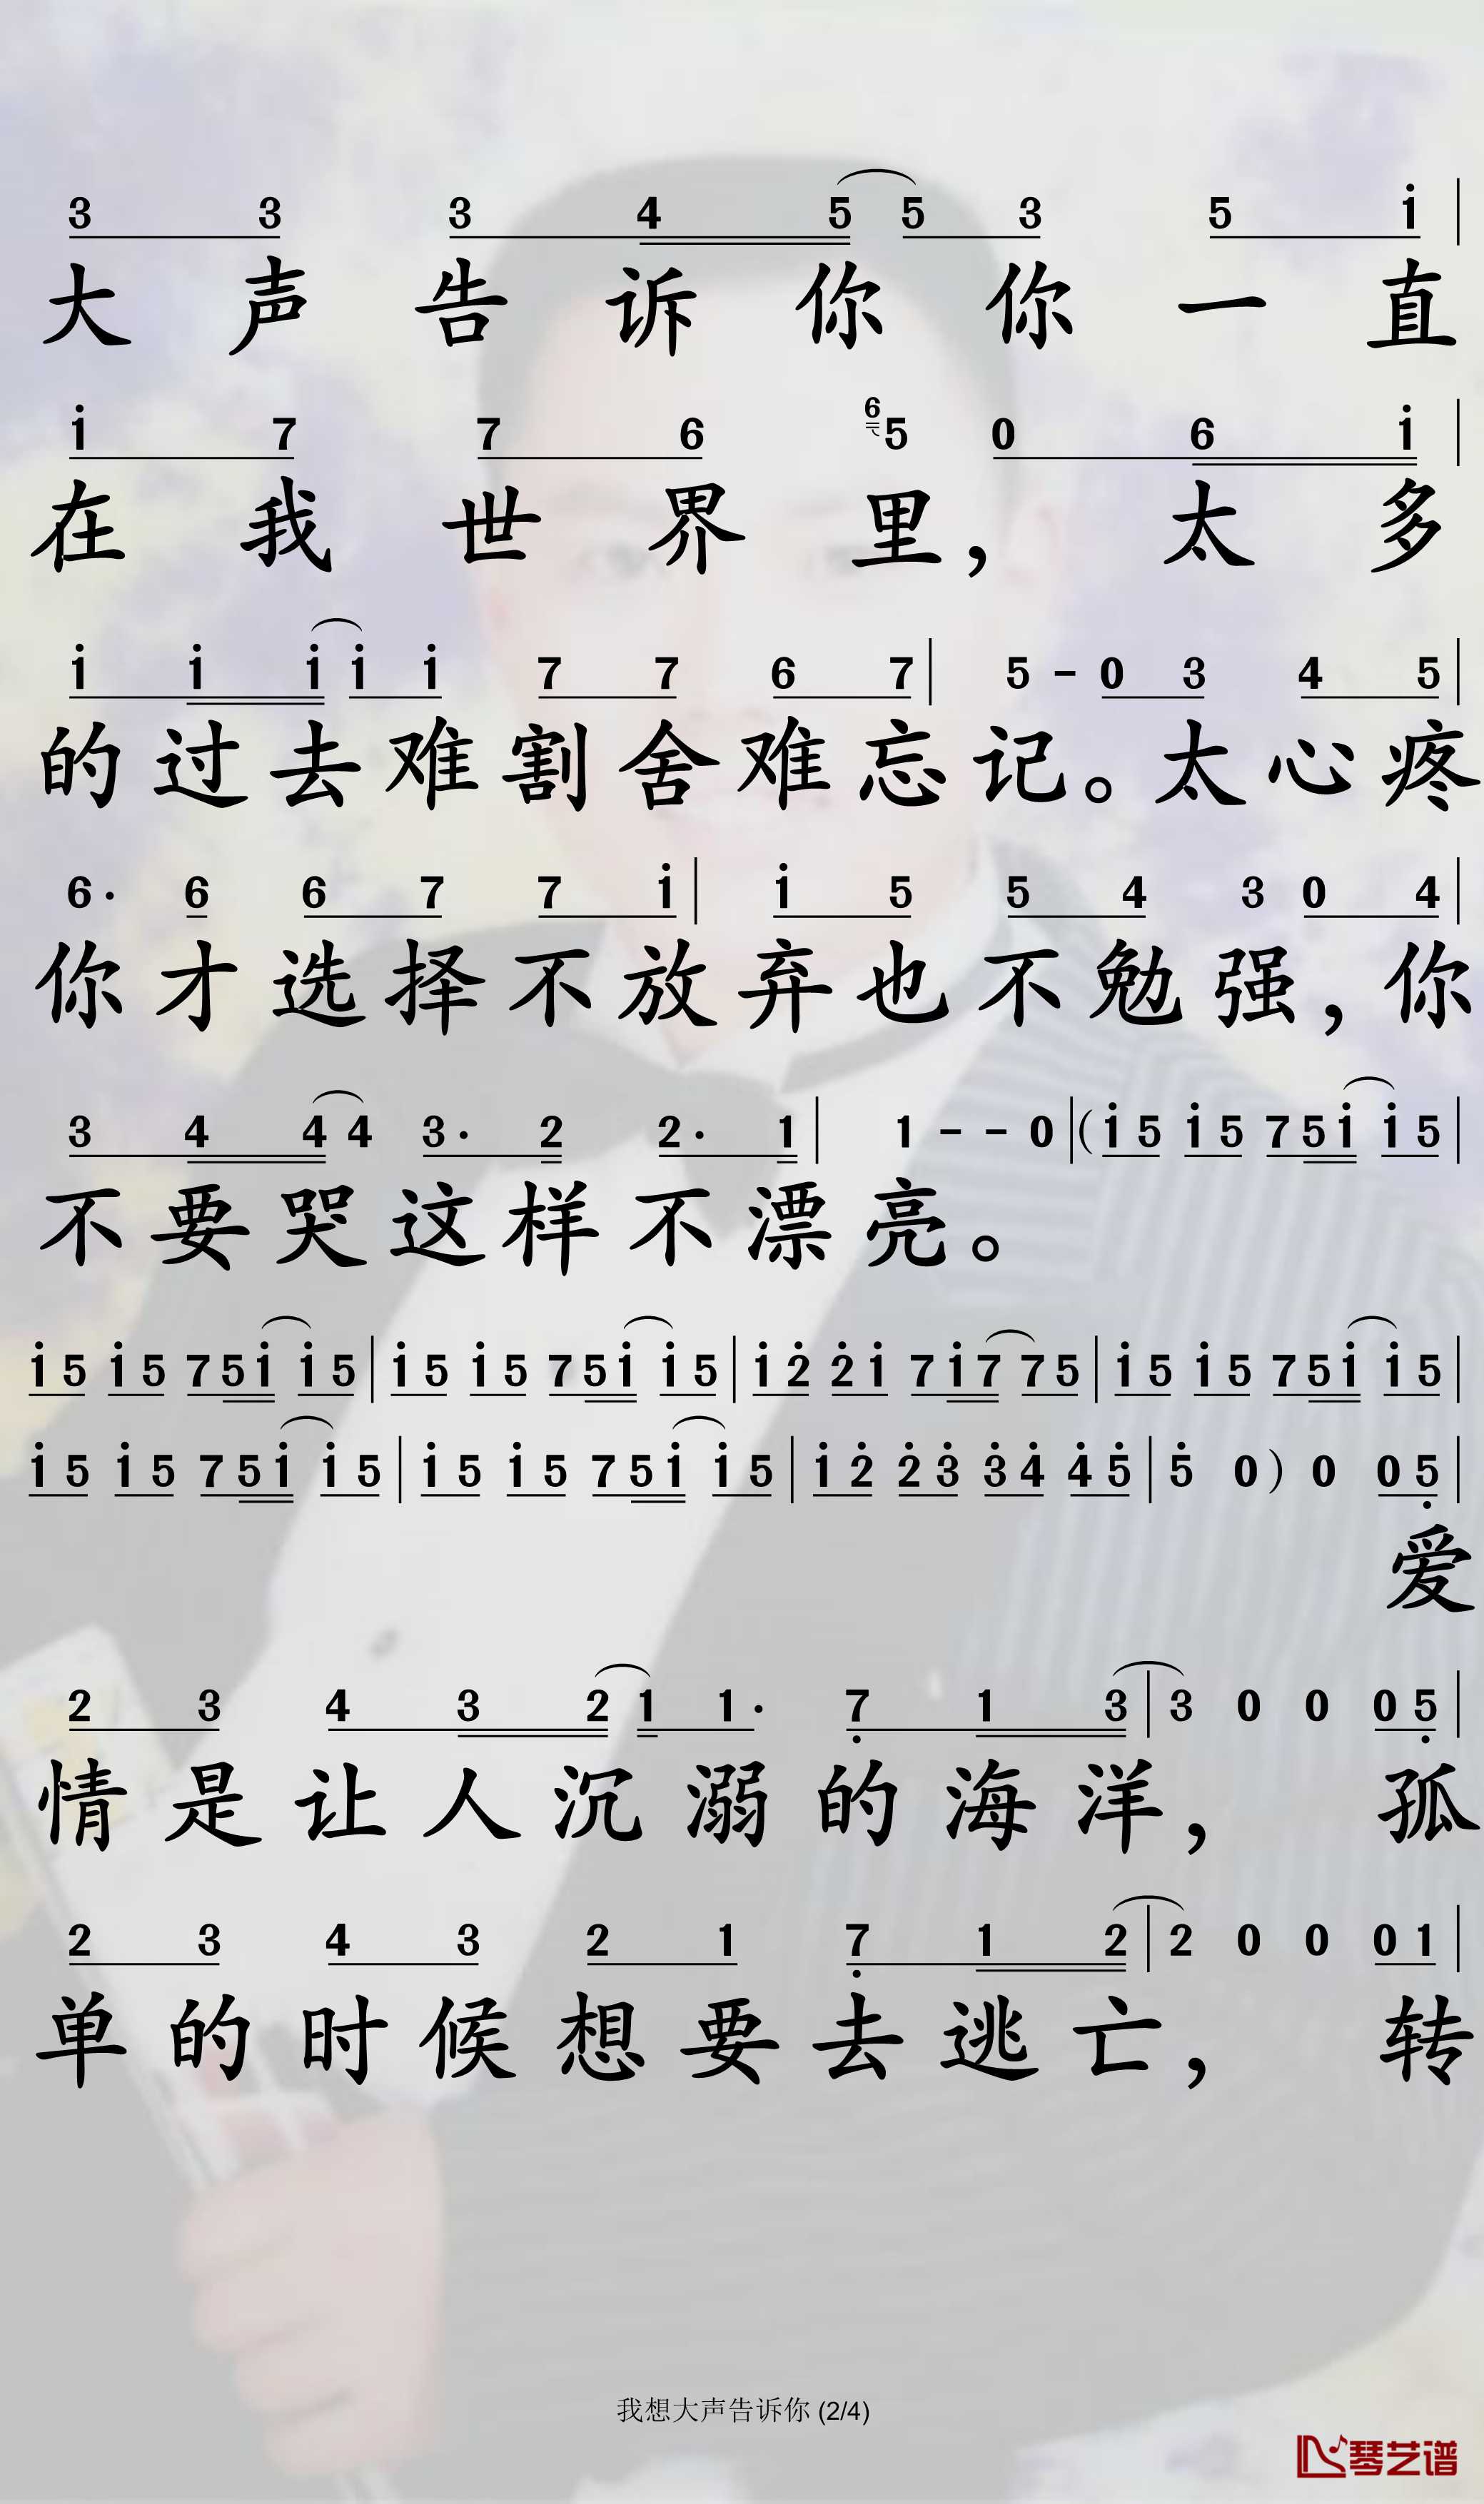 3 3 3 4 5 5 3 5 i |
大声告诉你你一直
i 7 7 6 6 5 0 6 i |
在我世界里，太多
i i i i i 7 7 6 7 | 5 - 0 3 4 5 |
的过去难割舍难忘记。太心疼
6· 6 6 7 7 i | i 5 5 4 3 0 4 |
你才选择不放弃也不勉强，你
3 4 4 4 3· 2 2· 1 | 1 - - 0 | (i 5 i 5 7 5 i i 5 |
不要哭这样不漂亮。
i 5 i 5 7 5 i i 5 | i 5 i 5 7 5 i i 5 | i 2̇ 2̇ i 7 i 7 7 5 | i 5 i 5 7 5 i i 5 |
i 5 i 5 7 5 i i 5 | i 5 i 5 7 5 i i 5 | i 2̇ 2̇ 3̇ 3̇ 4̇ 4̇ 5̇ | 5̇ 0) 0 0 5̣ |
爱
2 3 4 3 2 1 1· 7̣ 1 3 | 3 0 0 0 5̣ |
情是让人沉溺的海洋，孤
2 3 4 3 2 1 7̣ 1 2 | 2 0 0 0 1 |
单的时候想要去逃亡，转
我想大声告诉你 (2/4)
琴艺谱